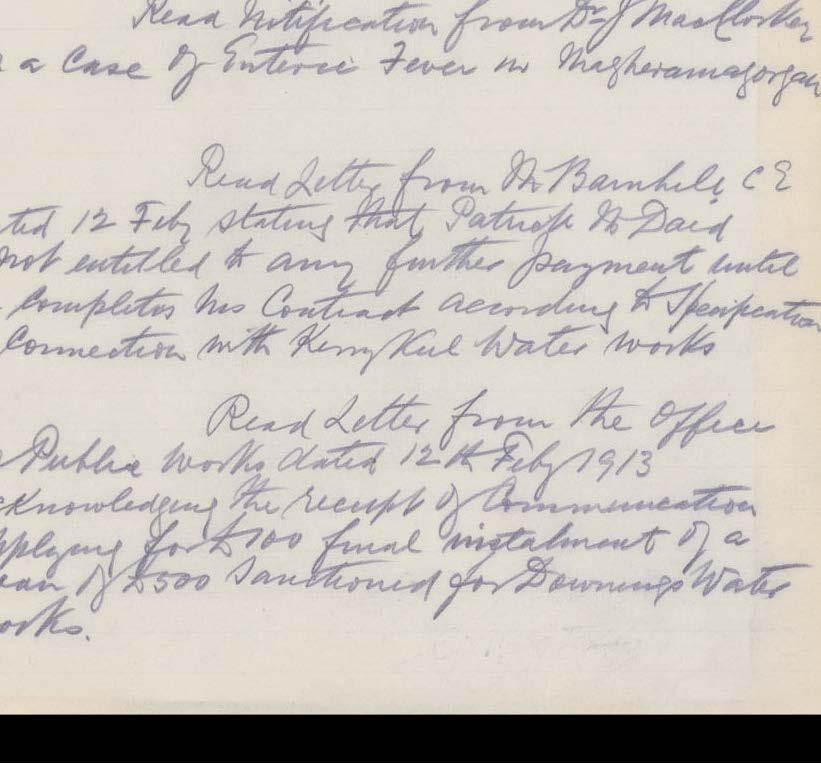 Read Notification from Dr J MacCloskey
a Case of Enteric Fever in Magheramagorgan
Read Letter from Mr Barnhill C E
ted 12 Feby stating that Patrick McDaid
not entitled to any further payment until
completes his Contract according to Specification
Connection with Kerrykeel Water works
Read Letter from the Office
Public Works dated 12th Feby 1913
cknowledging the receipt of Communication
pplying for £100 final instalment of a
oan of £500 Sanctioned for Downings Water
orks.